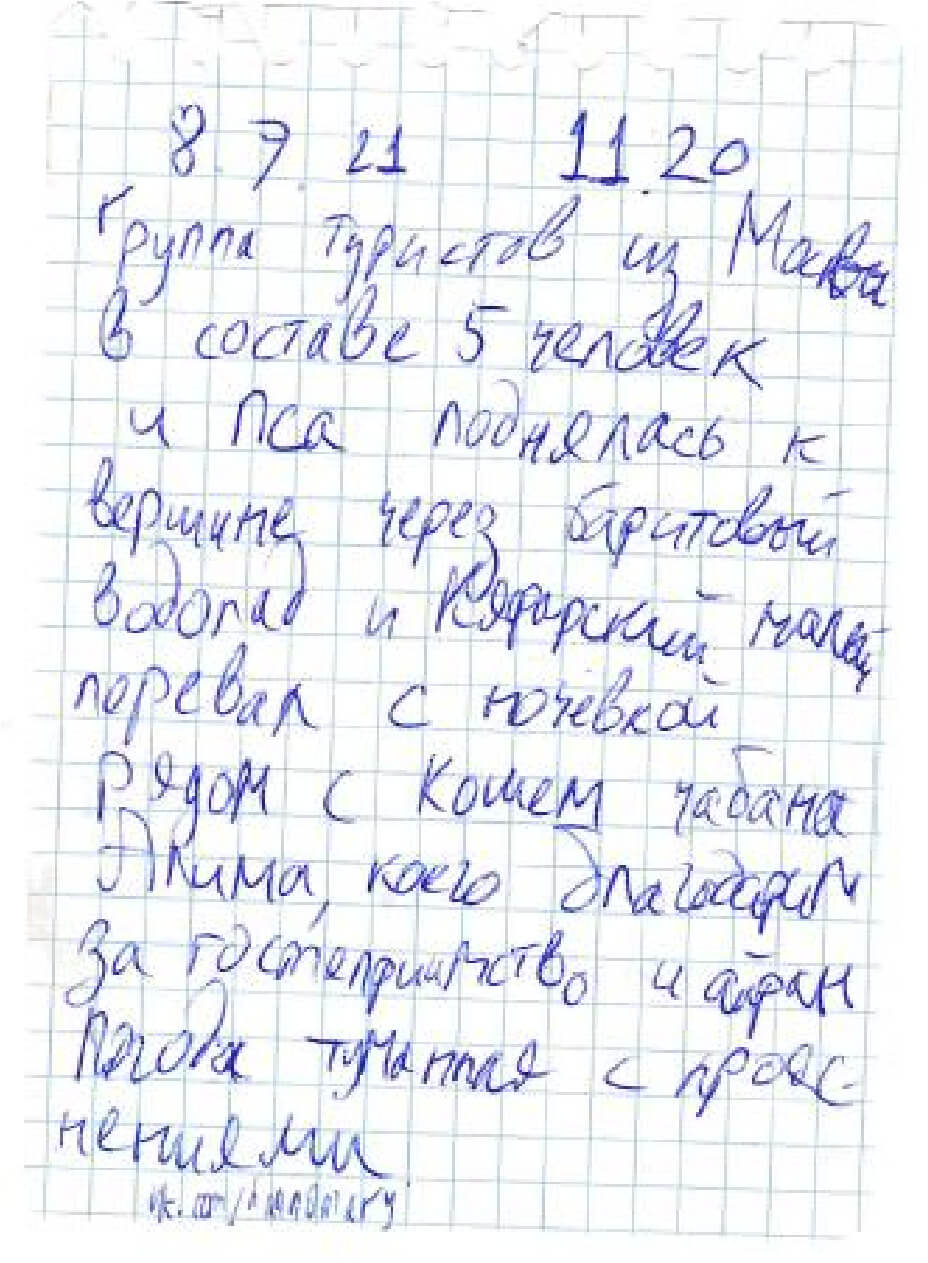 8.7.21 11.20
Группа туристов из Москвы
в составе 5 человек
и пса поднялась к
вершине через баритовый
водопад и Кяфарский малый
перевал с ночевкой
рядом с Кошем чабана
Алима, коего благодарим
за гостеприимство и айран
Погода туманная с прояс-
нениями
vk.com/